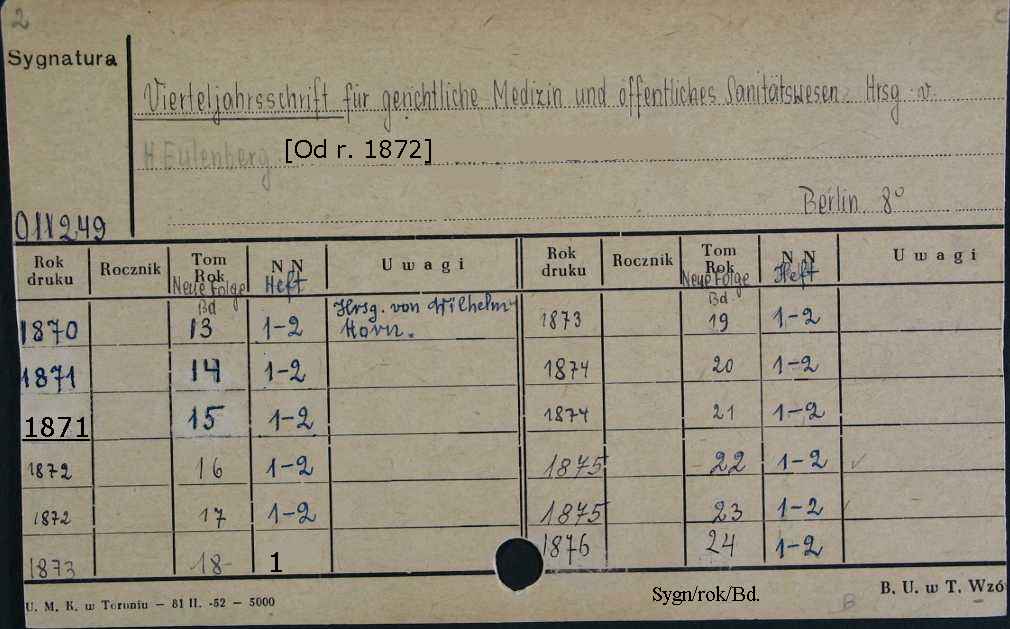 2
Sygnatura
Vierteljahrsschrift für gerichtliche Medizin und öffentliches Sanitätswesen. Hrsg. v.
H. Eulenberg [Od r. 1872]
Berlin 8°
011249
Rok druku Rocznik Tom Rok Neue Folge Bd NN Heft Uwagi Rok druku Rocznik Tom Rok Neue Folge Bd NN Heft Uwagi
1870 13 1-2 Hrsg. von Wilhelm Horn. 1873 19 1-2
1871 14 1-2 1874 20 1-2
1871 15 1-2 1874 21 1-2
1872 16 1-2 1875 22 1-2
1872 17 1-2 1875 23 1-2
1873 18 1 1876 24 1-2
U. M. K. w Toruniu — 81 II. -52 — 5000 Sygn/rok/Bd. B B. U. w T. Wzó